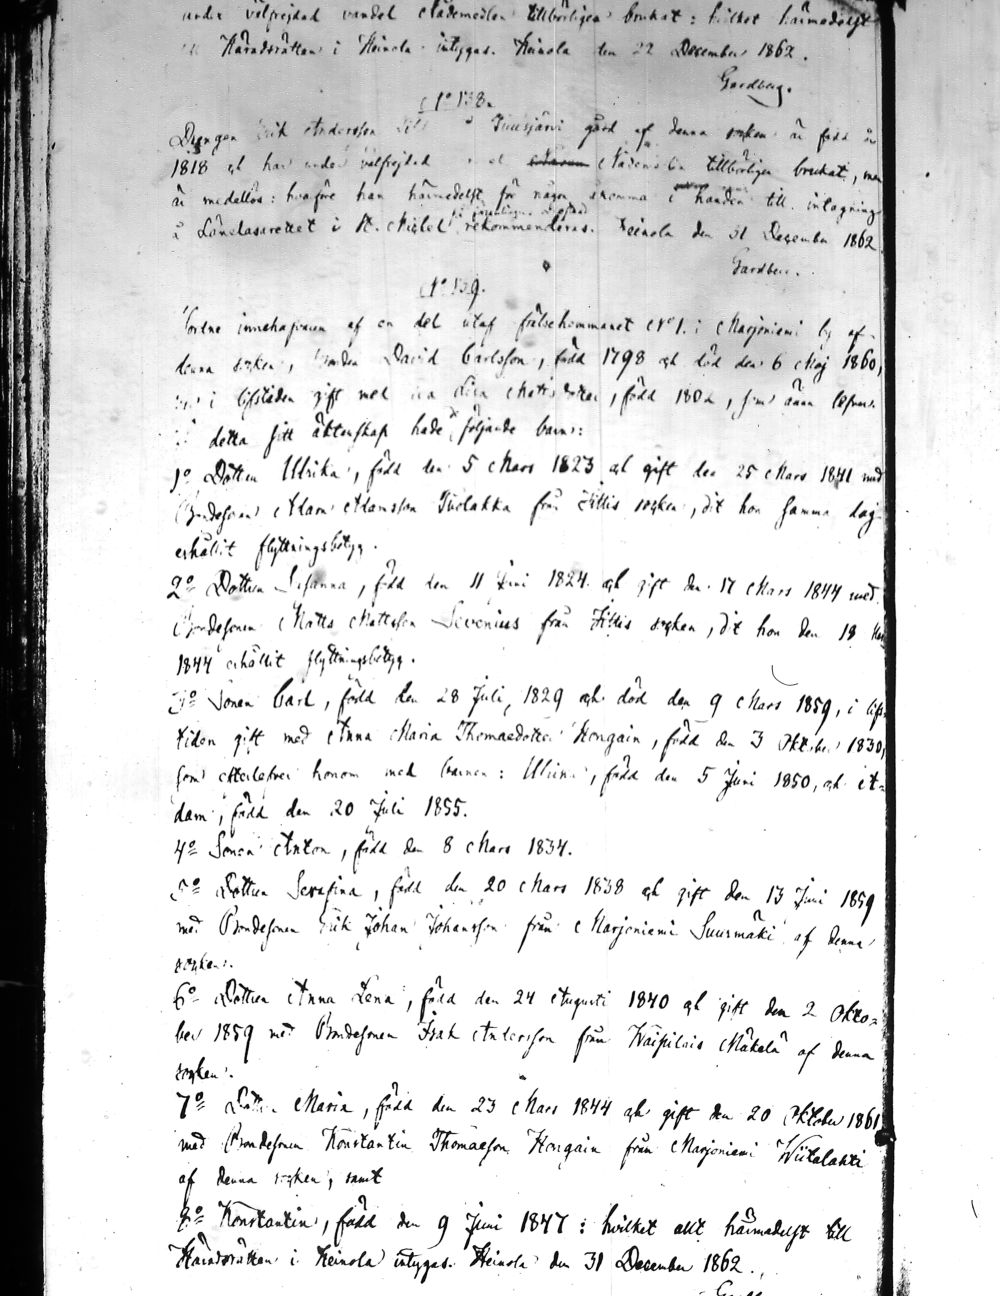 under välfrejdad vandel Nådemedlen tillbörligen brukat: hvilket härmedelst
Häradsrätten i Heinola intygas. Heinola den 22 December 1862.
Gardberg.
No 138.
Drengen Erik Andersson gård af denna socken är född år
1818 och har under välfrejdad Nådemedlen tillbörligen brukat, men
är medellös: hvarföre han härmedelst för någon i handen till intagning
å Länelasarettet i St. Michel rekommenderas. Heinola den 31 December 1862
Gardberg.
No 139.
innehafvaren af en del utaf frälsehemmanet No 1. i Marjoniemi by af
denna socken, bonden David Carlsson, född 1798 och död den 6 Maj 1860,
i lifstiden gift med Lisa Mattsdotter, född 1802, som ännu lefver.
detta sitt äktenskap hade följande barn:
1o Dottren Ulrika, född den 5 Mars 1823 och gift den 25 Mars 1841 med
Bondesonen Adam Adamsson Tuolakka från Iittis socken, dit hon samma dag
erhållit flyttningsbetyg.
2o Dottren Susanna, född den 11 Juni 1824 och gift den 17 Mars 1844 med
Bondesonen Matts Mattsson Sevenius från Iittis socken, dit hon den 18
1844 erhållit flyttningsbetyg.
3o Sonen Carl, född den 28 Juli, 1829 och död den 9 Mars 1859, i lifs
tiden gift med Anna Maria Thomaedotter Hongain, född den 3 Oktober 1830,
som efterlefver honom med barnen: född den 5 Juni 1850, och A-
dam, född den 20 Juli 1855.
4o Sonen Anton, född den 8 Mars 1834.
5o Dottren Serafina, född den 20 Mars 1838 och gift den 13 Juni 1859
med Bondesonen Erik Johan Johansson från Marjoniemi Suurmäki af denna
socken.
6o Dottren Anna Lena, född den 24 Augusti 1840 och gift den 2 Okto-
ber 1859 med Bondesonen Isak Andersson från Waipilais Mäkelä af denna
socken.
7o Dottren Maria, född den 23 Mars 1844 och gift den 20 Oktober 1861
med Bondesonen Konstantin Thomaeson Hongain från Marjoniemi Wiitalahti
af denna socken, samt
8o Konstantin, född den 9 Juni 1847: hvilket allt härmedelst till
Häradsrätten i Heinola intygas. Heinola den 31 December 1862.